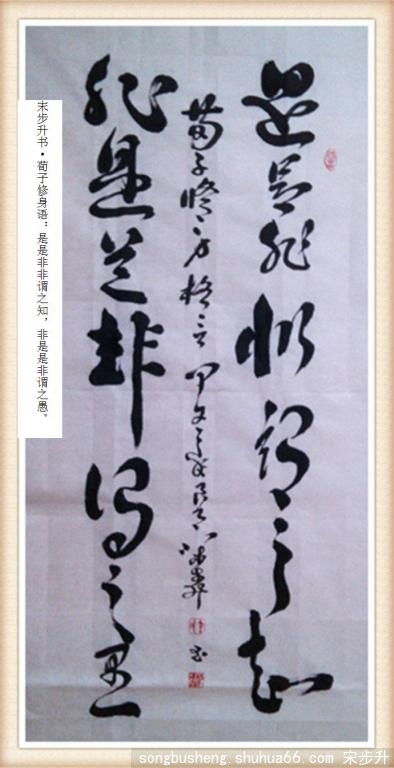 是是非非谓之知
非是是非谓之愚
荀子修身格言 甲午之
宋步升书•荀子修身语：是是非非谓之知，非是是非谓之愚。
songbusheng.shuhua66.com 宋步升